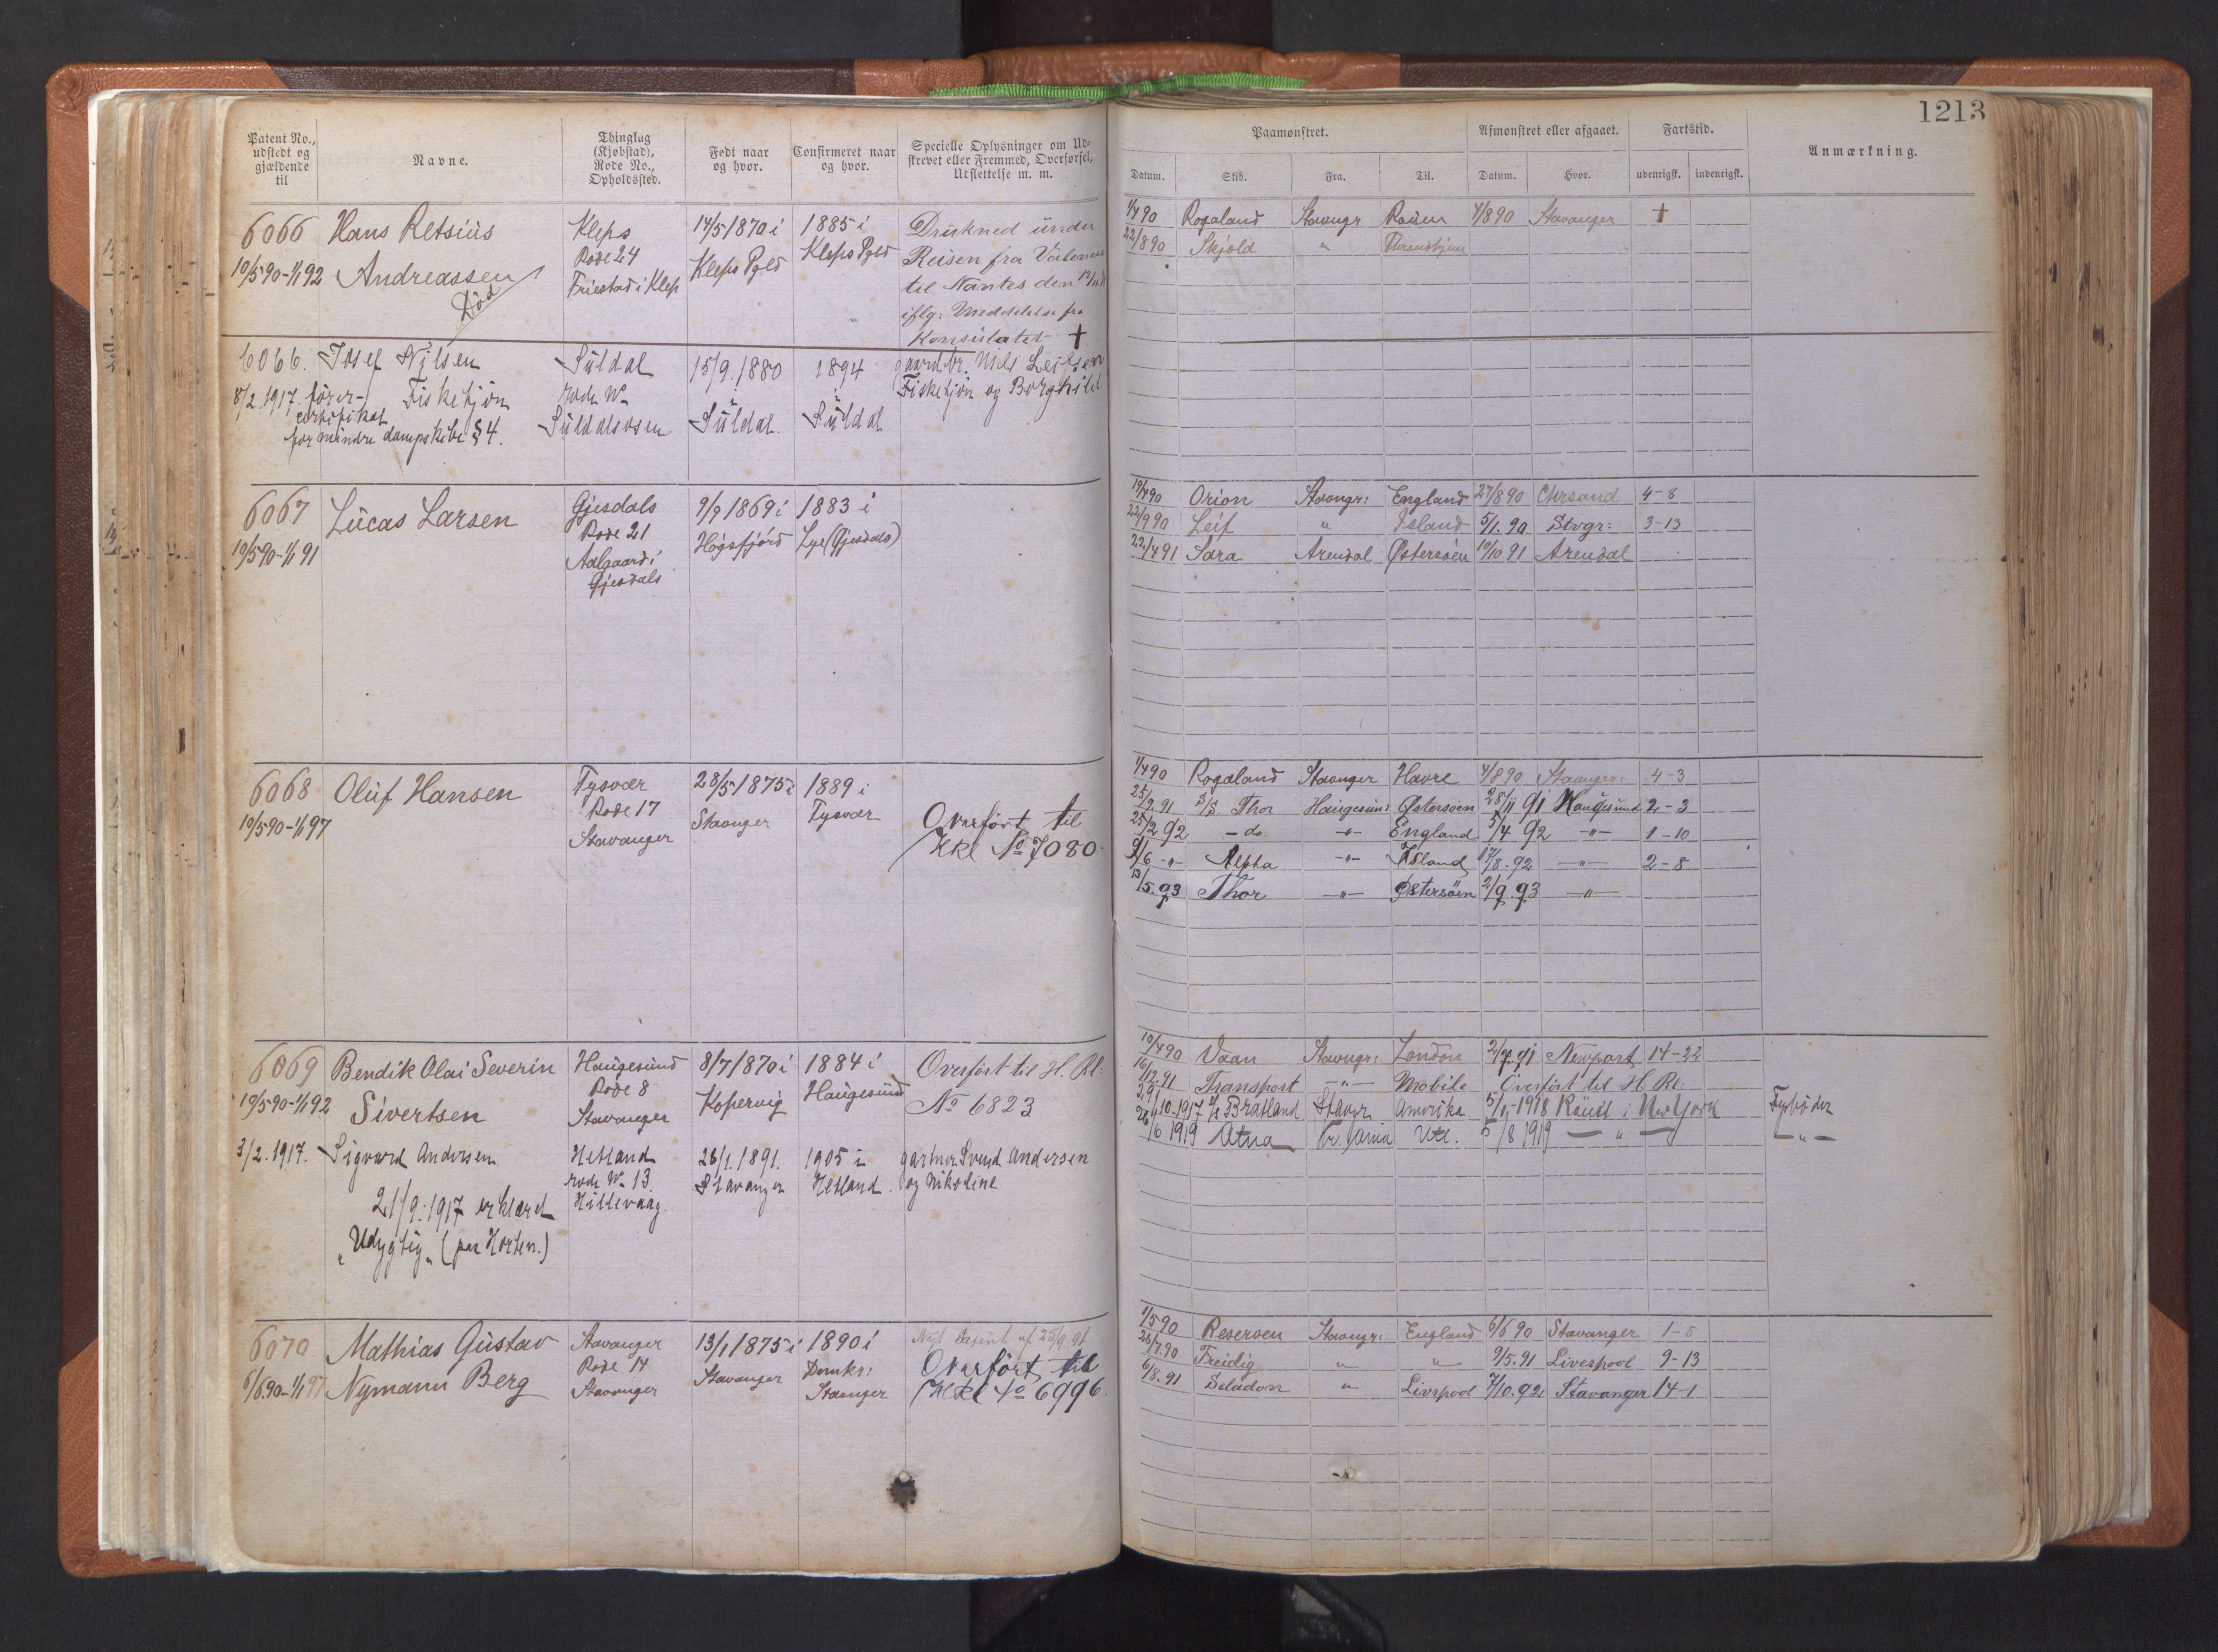 1213
Patent No., udstedt og gjældende til
Navne.
Thinglag (Kjøbstad), Rode No., Opholdssted.
Født naar og hvor.
Confirmeret naar og hvor.
Specielle Oplysninger om Udskrevet eller Fremmed, Overførsel, Udslettelse m. m.
Paamønstret.
Afmønstret eller afgaaet.
Fartstid.
Anmærkning.
Datum.
Skib.
Fra.
Til.
Datum.
Hvor.
udenrigsk.
indenrigsk.
6066
10/5 90-1/1 92
Hans Retsius
Andreassen
Død
Kleps
Rode 24
Friestad i Klep
14/5 1870 i
Kleps Pgld
1885 i
Kleps Pgld
Drukned under
Reisen fra
til Nantes den
iflg: Meddelelse fra
Konsulatet †
1/4 90 Rogaland Stavngr Rouen 4/8 90 Stavanger †
22/8 90 Skjold " Throndhjem
6066. Josef Nilsen
8/2.1917. fører- Fisketjøn
certifikat
for mindre dampskibe § 4.
Suldal
rode No
Suldalsosen
15/9.1880
i
Suldal.
1894
i
Suldal
gaardbr. Nils Leifsen
Fisketjøn og Borghild
6067
10/5 90-1/1 91
Lucas Larsen
Gjesdals
Rode 21
Aalgaard i
Gjesdals
9/9 1869 i
Høgsfjord
1883 i
Lye (Gjesdals)
19/4 90 Orion Stavngr: England 27/8 90 Chrsand 4-8
22/9 90 Leif " Island 5/1. 90 Stvgr: 3-13
22/4 91 Sara Arendal Østersøen 10/10 91 Arendal
6068
10/5 90-1/1 97
Oluf Hansen
Tysvær
Rode 17
Stavanger
28/5 1875 i
Stavanger
1889 i
Tysvær
Overført til
Hkl No 7080.
1/4 90 Rogaland Stavnger Havre 4/8 90 Stavnger: 4-3
25/9.91 S/S. Thor Haugesund: Østersøen 28/11 91 Haugesund 2-3
25/2 92 - do. -"- England 5/4 92 -"- 1-10
9/6 -"- Alpha -"- Island 17/8.92 -"- 2-8
13/5.93 Thor -"- Østersøen 2/9.93 -"-
6069
10/5 90-1/1 92
Bendik Olai Severin
Sivertsen
Haugesund
Rode 8
Stavanger
8/7 1870 i
Kopervig
1884 i
Haugesund
Overført til H. Rl:
No 6823
3/2.1917. Sigvard Andersen.
21/9.1917 erklæret
"Udygtig" (par Horten.)
Hetland
rode No 13.
Hillevaag.
26/1.1891.
Stavanger
1905 i
Hetland.
gartner Svend Andersen
og Nikoline
10/4 90 Vaan Stavngr: London 2/4.91 Newport 14-22
16/12.91 Transport -"- Mobile Overført til H. Rl:
29/10.1917 Bratland Stavgr Amerika 5/1-1918 Rømt i New York Fyrbøder
26/6 1919 Atna Kr.jania Utl. 5/8 1919 -"- -"-
6070
6/6 90-1/1 97
Mathias Gustav
Nymann Berg
Stavanger
Rode 14
Stavanger
13/1 1875 i
Stavanger
1890 i
Domks:
Stavnger
Nyt Patent af 25/9.91
Overført til
Hkl No 6996.
1/5 90 Reserven Stavngr: England 6/6 90 Stavanger 1-5
28/7 90 Freidig " " 9/5.91 Liverpool 9-13
6/8.91 Seladon " Livrpool 7/10.92 Stavanger 14-1